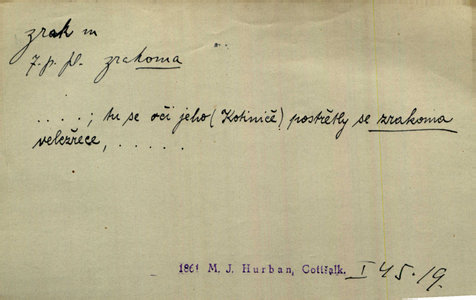 zrak m
7. p. pl. zrakoma
. . . . ; tu se oči jeho (Kotinič) postřětly se zrakoma
velezřece, . . . . . .
1861 M. J. Hurban, Gottšalk. I 45.19.